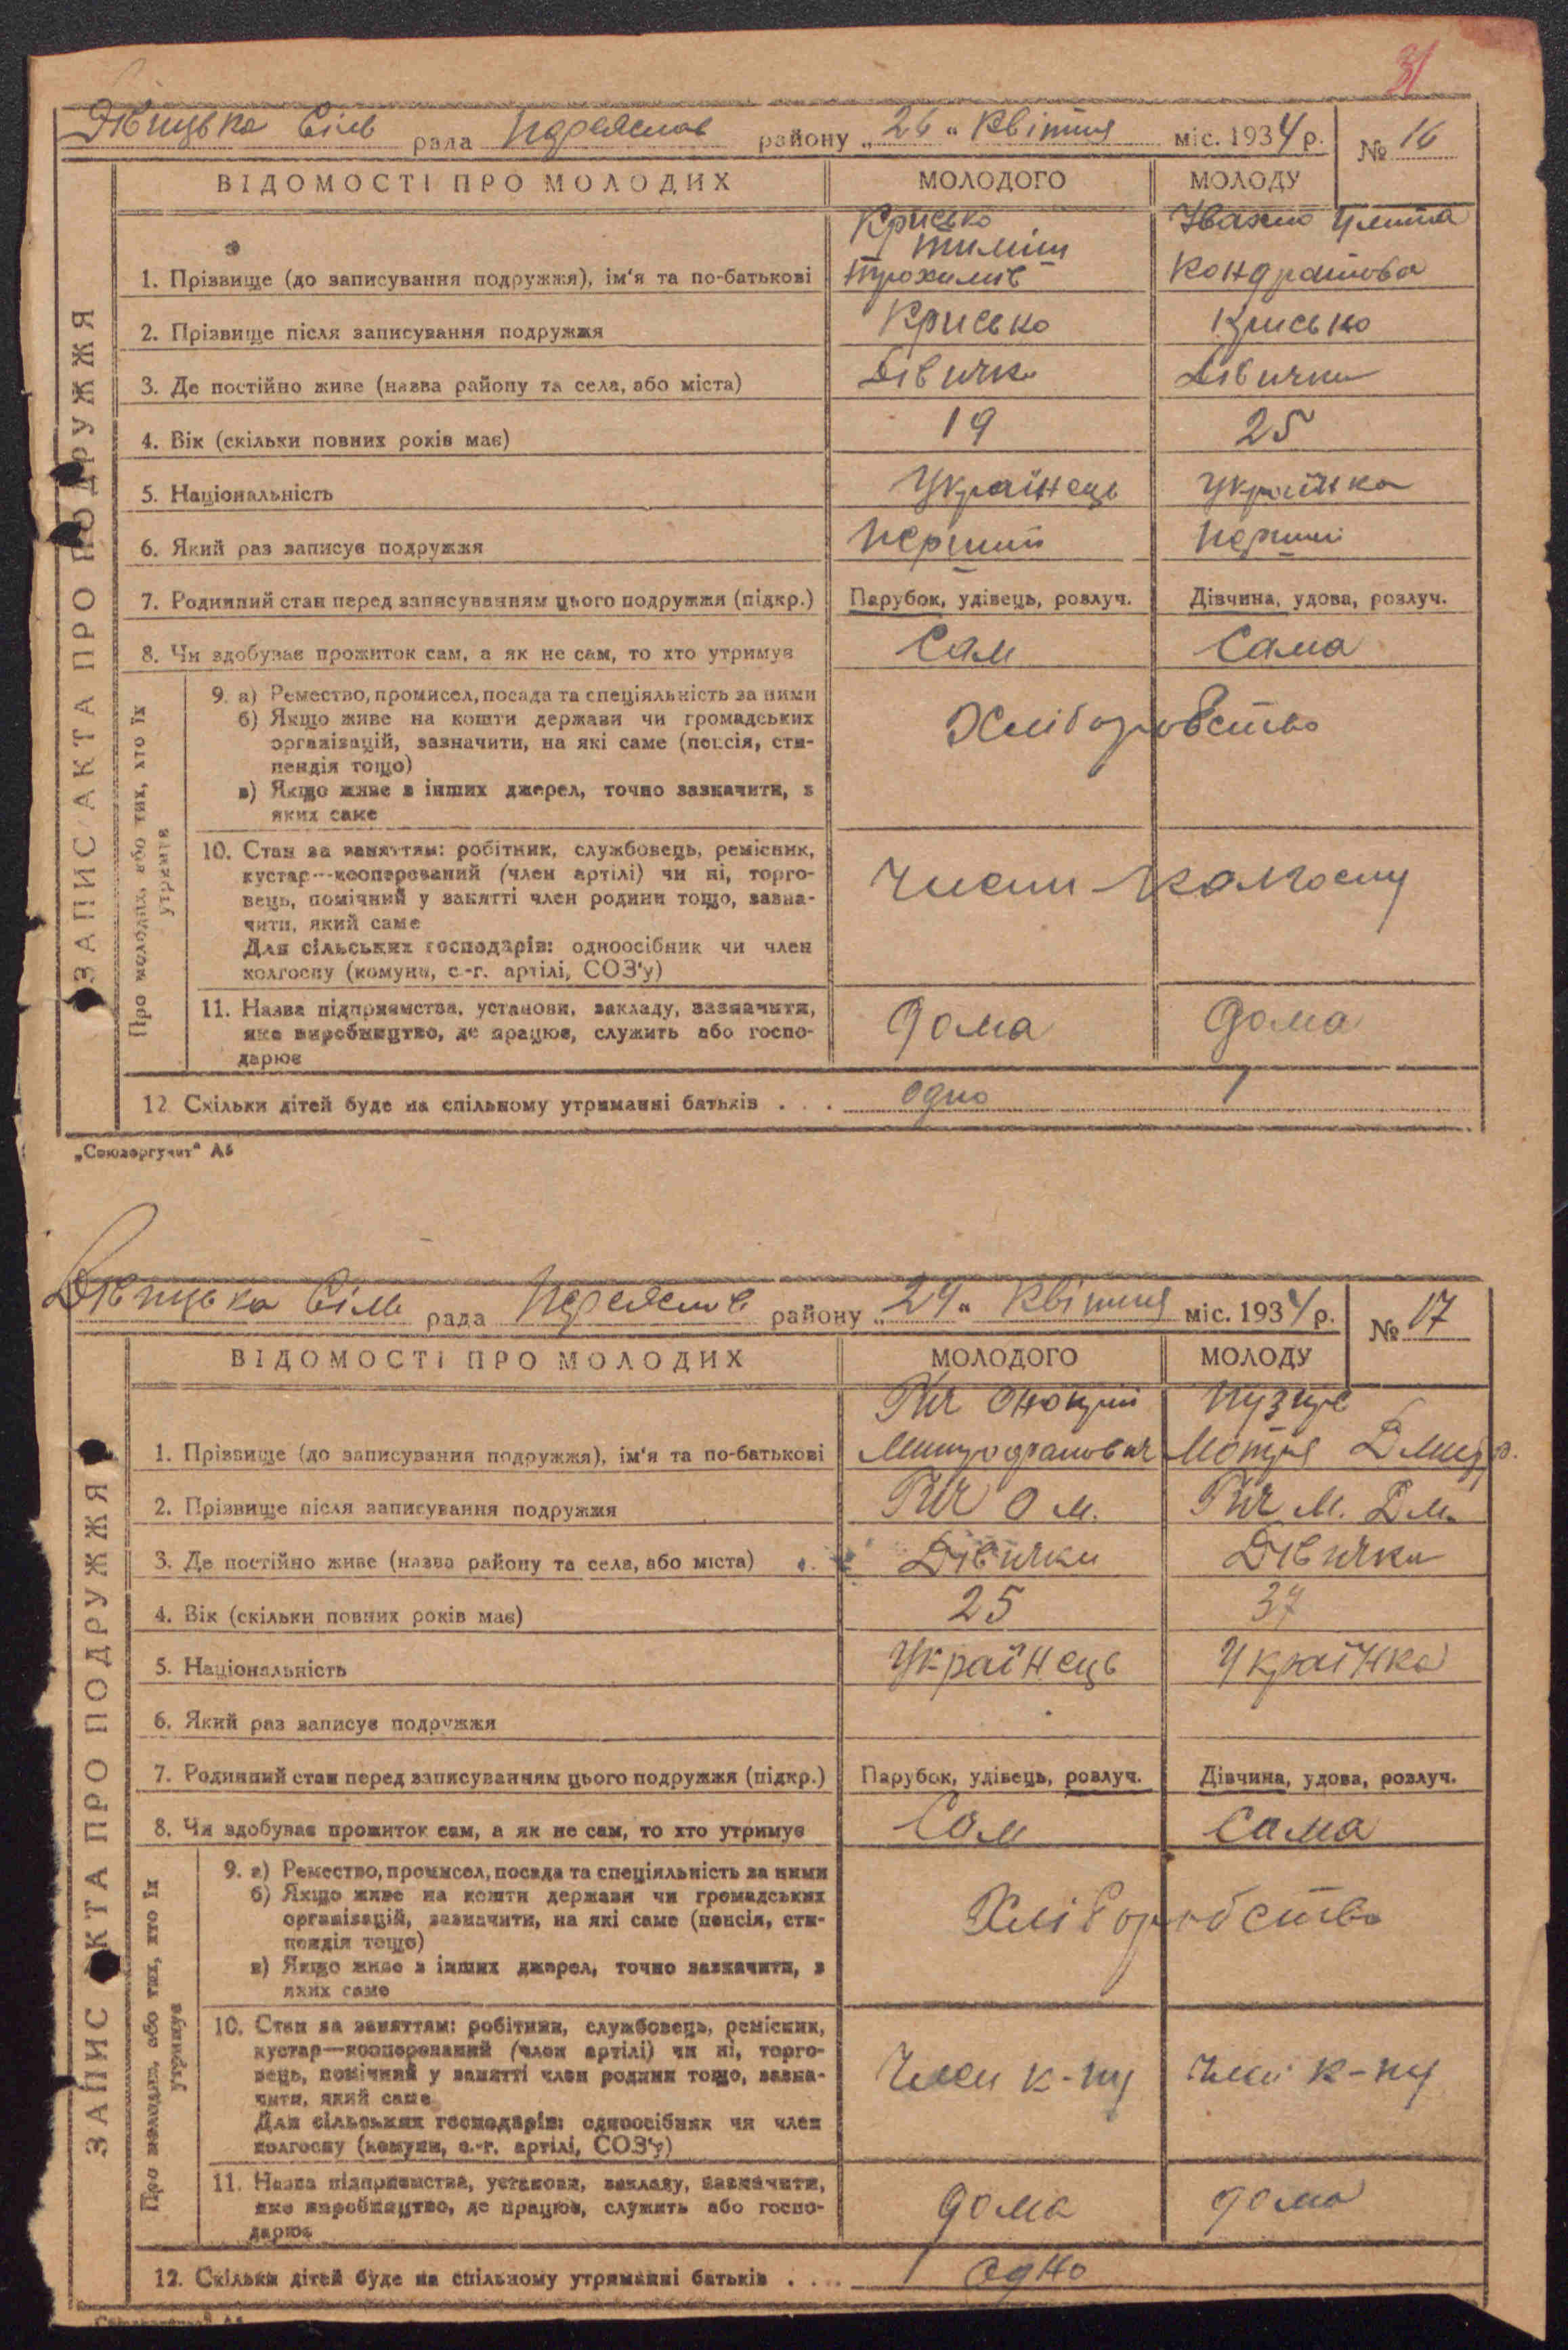 31
Дівицька Сіль рада Переяслов району „26" Квітня міс. 1934 р. № 16
ВІДОМОСТІ ПРО МОЛОДИХ МОЛОДОГО МОЛОДУ
Крисько
Тиміш
1. Прізвище (до записування подружжя), ім'я та по-батькові Трохимів Кондратова
2. Прізвище після записування подружжя Крисько Крисько
3. Де постійно живе (назва району та села, або міста) Дівички Дівички
4. Вік (скільки повних років має) 19 25
5. Національність Українець Українка
6. Який раз записує подружжя перший перший
7. Родинний стан перед записуванням цього подружжя (підкр.) Парубок, удівець, розлуч. Дівчина, удова, розлуч.
8. Чи здобуває прожиток сам, а як не сам, то хто утримує Сам Сама
9. а) Ремество, промисел, посада та спеціяльність за ними
б) Якщо живе на кошти держави чи громадських
організацій, зазначити, на які саме (пенсія, сти-
пендія тощо)
в) Якщо живе з інших джерел, точно зазначити, з
яких саме
Хліборобство
10. Стан за заняттям: робітник, службовець, ремісник,
кустар—кооперований (член артілі) чи ні, торго-
вець, помічний у занятті член родини тощо, зазна-
чити, який саме
Для сільських господарів: одноосібник чи член
колгоспу (комуни, с.-г. артілі, СОЗ'у)
Члени Колгоспу
11. Назва підприємства, установи, закладу, зазначити,
яке виробництво, де працює, служить або госпо-
дарює
дома дома
12. Скільки дітей буде на спільному утриманні батьків . . . одно 1
ЗАПИС АКТА ПРО ПОДРУЖЖЯ
Про молодих, або тих, хто їх
утримує
„Союзоргучет" А5
Дівицька Сіль рада Переяслов району „29" Квітня міс. 1934 р. № 17
ВІДОМОСТІ ПРО МОЛОДИХ МОЛОДОГО МОЛОДУ
1. Прізвище (до записування подружжя), ім'я та по-батькові Митрофанович Мотря Дмитр.
2. Прізвище після записування подружжя О М. М. Дм.
3. Де постійно живе (назва району та села, або міста) Дівички Дівички
4. Вік (скільки повних років має) 25 37
5. Національність Українець Українка
6. Який раз записує подружжя
7. Родинний стан перед записуванням цього подружжя (підкр.) Парубок, удівець, розлуч. Дівчина, удова, розлуч.
8. Чи здобуває прожиток сам, а як не сам, то хто утримує Сам Сама
9. а) Ремество, промисел, посада та спеціяльність за ними
б) Якщо живе на кошти держави чи громадських
організацій, зазначити, на які саме (пенсія, сти-
пендія тощо)
в) Якщо живе з інших джерел, точно зазначити, з
яких саме
Хліборобство
10. Стан за заняттям: робітник, службовець, ремісник,
кустар—кооперований (член артілі) чи ні, торго-
вець, помічний у занятті член родини тощо, зазна-
чити, який саме
Для сільських господарів: одноосібник чи член
колгоспу (комуни, с.-г. артілі, СОЗ'у)
Член к-пу Член к-пу
11. Назва підприємства, установи, закладу, зазначити,
яке виробництво, де працює, служить або госпо-
дарює
дома дома
12. Скільки дітей буде на спільному утриманні батьків . . . 1 одно
ЗАПИС АКТА ПРО ПОДРУЖЖЯ
Про молодих, або тих, хто їх
утримує